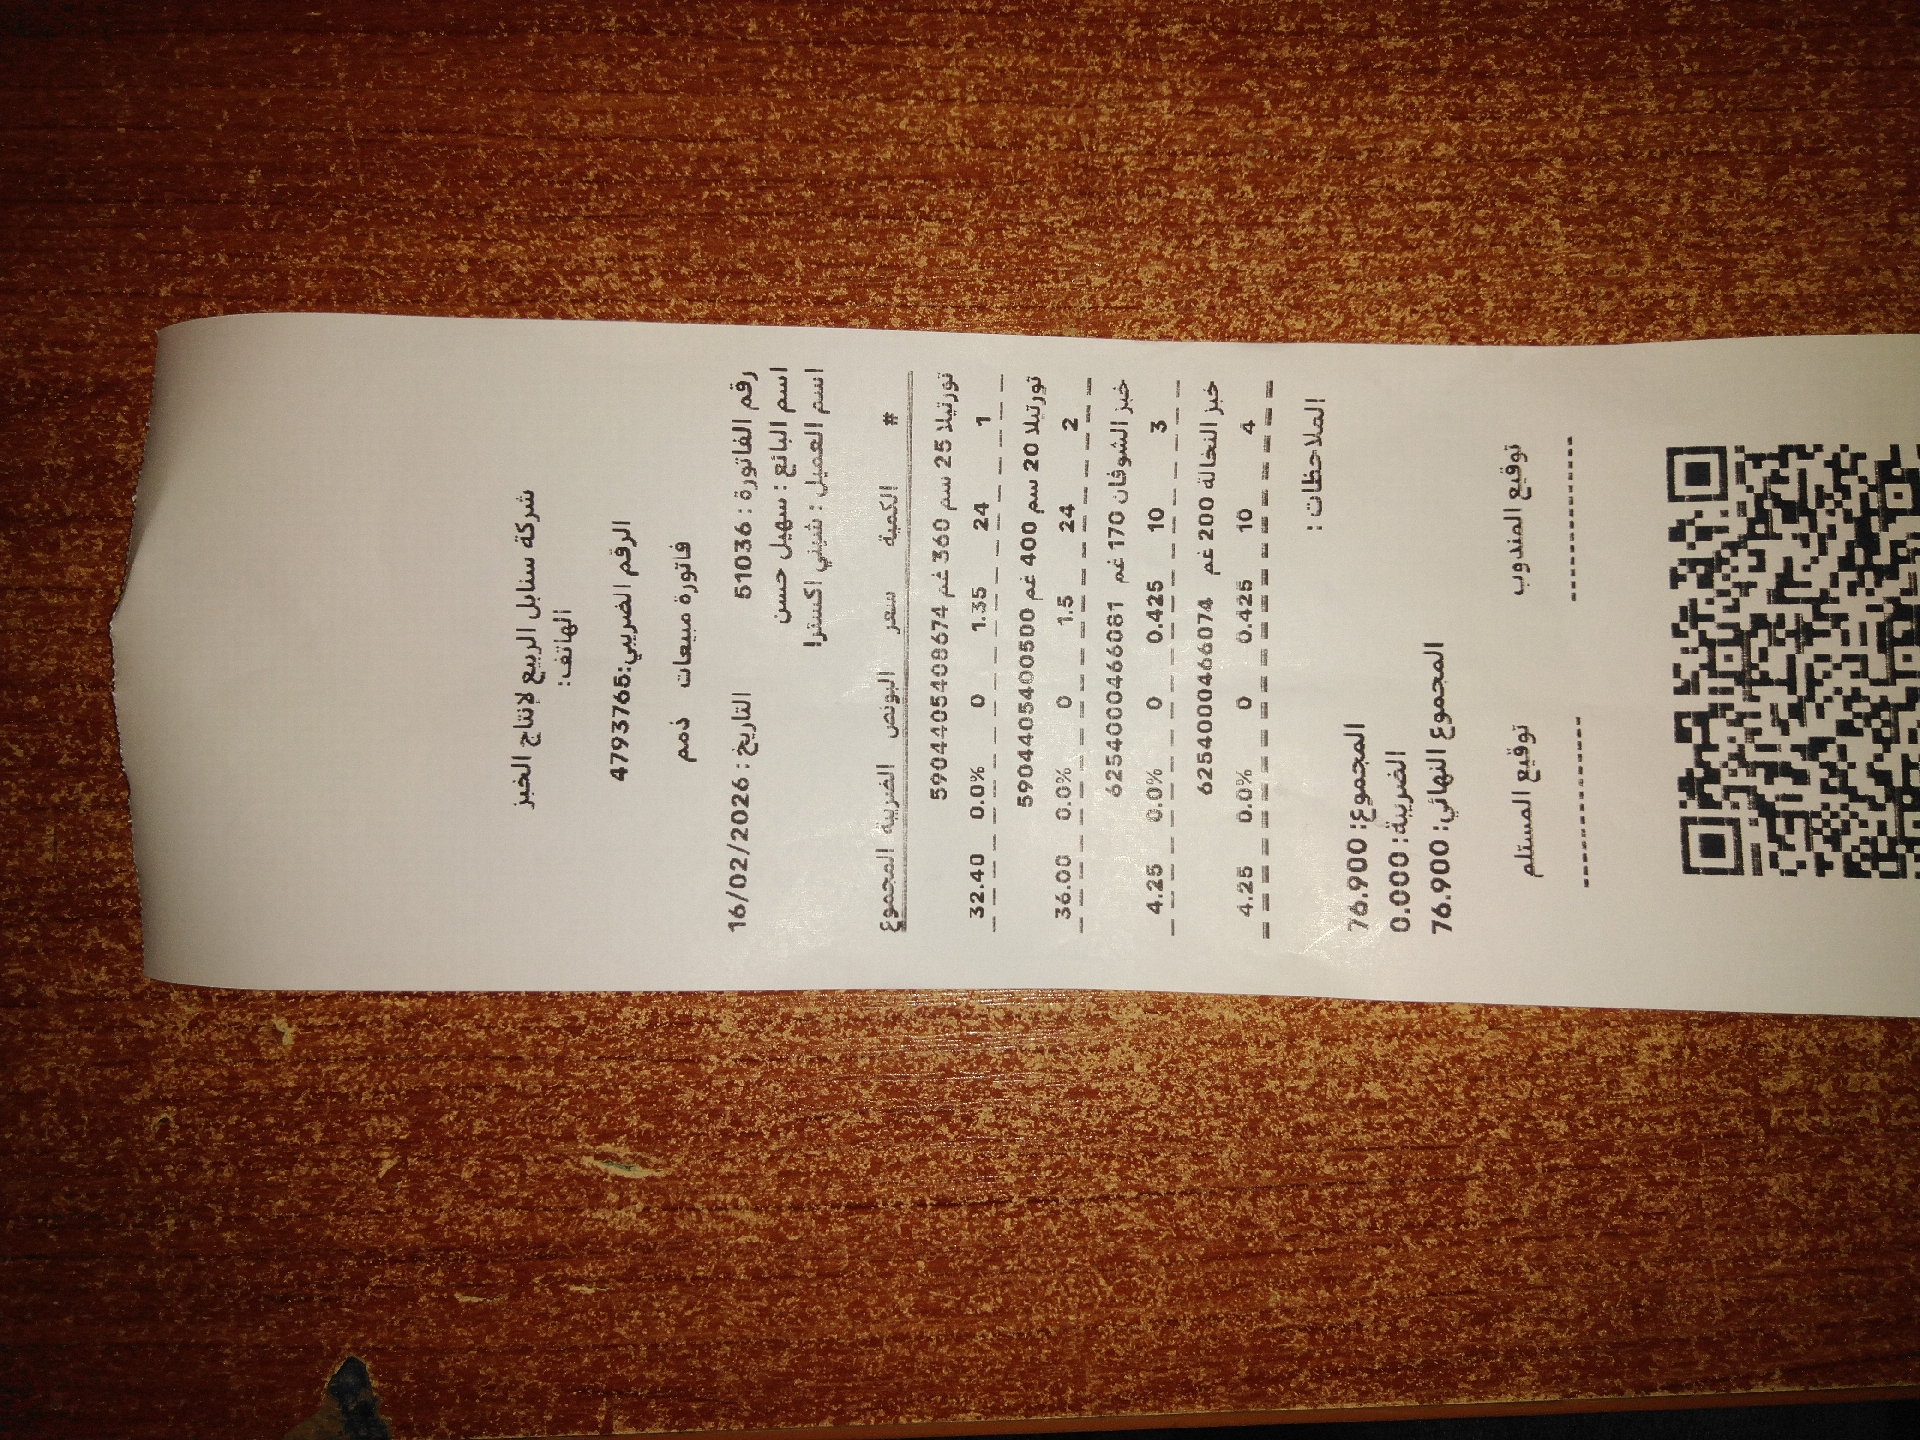 شركة سنابل الربيع لإنتاج الخبز
الهاتف:
الرقم الضريبي:4793765
فاتورة مبيعات ذمم
رقم الفاتورة : 51036 التاريخ : 16/02/2026
اسم البائع : سهيل حسن
اسم العميل : شيني اكسترا
# الكمية سعر البونص الضريبة المجموع
تورتيلا 25 سم 360 غم 5904405408674
1 24 1.35 0 0.0% 32.40
تورتيلا 20 سم 400 غم 5904405400500
2 24 1.5 0 0.0% 36.00
خبز الشوفان 170 غم 6254000466081
3 10 0.425 0 0.0% 4.25
خبز النخالة 200 غم 6254000466074
4 10 0.425 0 0.0% 4.25
الملاحظات :
المجموع: 76.900
الضريبة: 0.000
المجموع النهائي: 76.900
توقيع المندوب توقيع المستلم